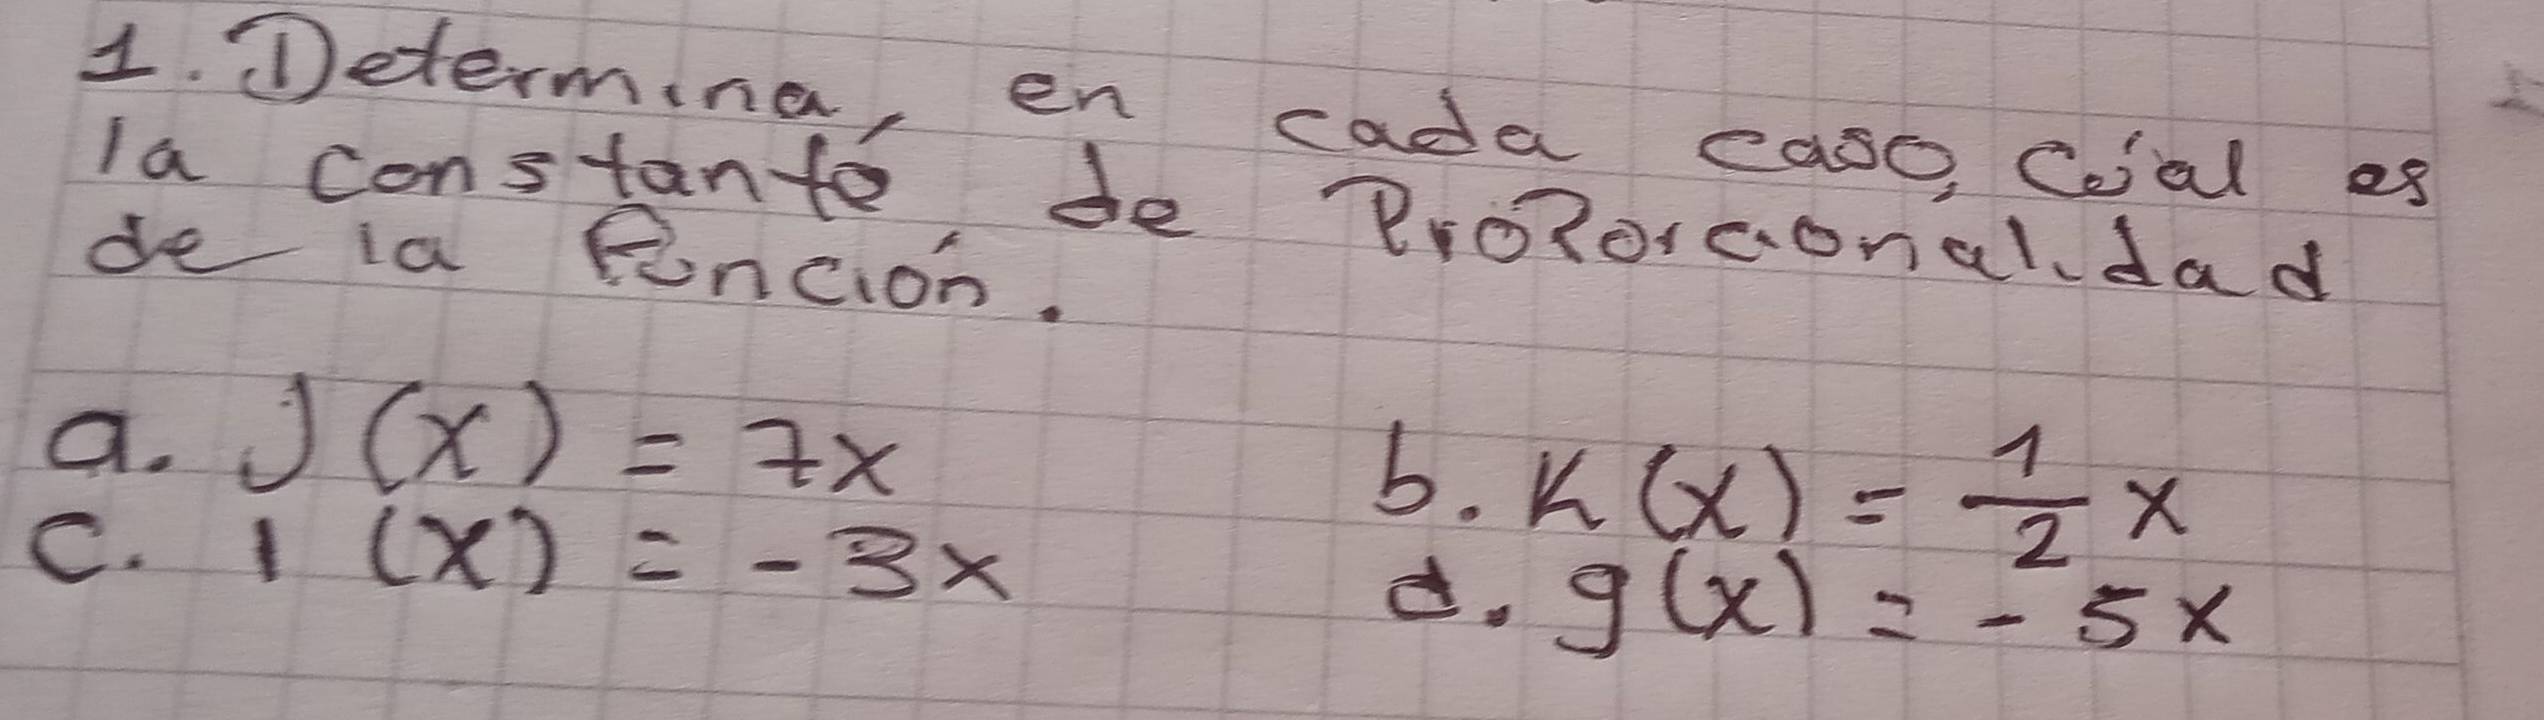 1. Determina, en cada caso, cúal es
la constante de Proporcionalidad
de la función.
a. J(x) = 7x b. K(x) = 1/2 x
c. i (x) = -3x d. g(x) = -5x